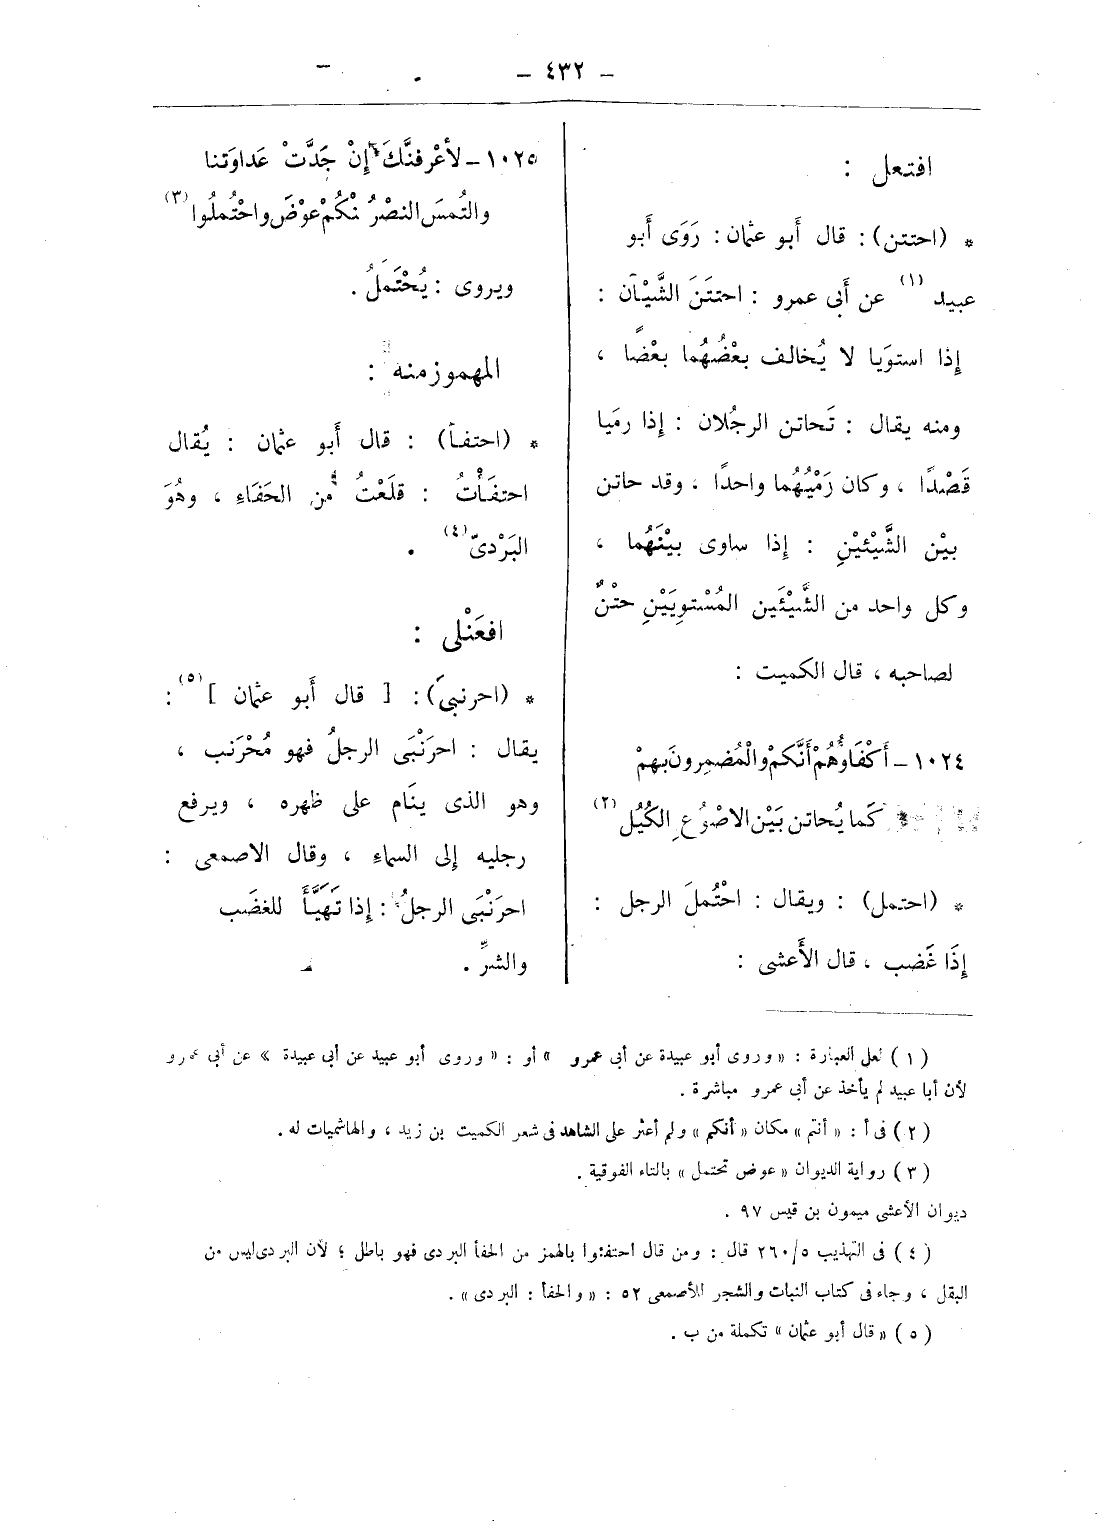 – ٤٣٢ –
افتعل :
* (احتتن) : قال أَبو عثمان : رَوَى أَبو
عبيد (١) عن أَبى عمرو : احتتَنَ الشَّيْآن :
إِذا استوَيا لا يُخالف بعْضُهُما بعْضًا ،
ومنه يقال : تَحاتن الرجُلان : إِذا رميَا
قَصْدًا ، وكان رَمْيُهُما واحدًا ، وقد حاتن
بيْن الشَّيْئيْنِ : إِذا ساوى بيْنَهُما ،
وكل واحد من الشَّيْئَين المُسْتوِيَيْنِ حتْنٌ
لصاحبه ، قال الكميت :
١٠٢٤ – أَكْفَاؤُهُمْ أَنَّكمْ والْمُضمِرونَ بهمْ
كَما يُحاتن بَيْن الاصْوُعِ الكُيُل (٢)
* (احتمل) : ويقال : احْتُملَ الرجل :
إِذَا غَضب ، قال الأَعشى :
١٠٢٥ – لأعْرفنَّكَ إِنْ جَدَّتْ عَداوَتنا
والتُمسَ النصْرُ منكُمْ عوْضَ واحْتُملُوا (٣)
ويروى : يُحْتَملُ .
المهموز منه :
* (احتفأ) : قال أَبو عثمان : يُقال
احتفَأْتُ : قلَعْتُ من الحَفَاءِ ، وهُوَ
البَرْدىّ (٤) .
افعَنْلى :
* (احرنبىَ) : [ قال أَبو عثمان ] (٥) :
يقال : احرَنْبَى الرجلُ فهو مُحْرَنب ،
وهو الذى ينَام على ظهره ، ويرفع
رجليه إِلى السماءِ ، وقال الاصمعى :
احرَنْبَى الرجلُ : إِذا تَهَيَّأَ للغضَب
والشرِّ .
(١) لعل العبارة : « وروى أبو عبيدة عن أبى عمرو » أو : « وروى أبو عبيد عن أبى عبيدة » عن أبى عمرو
لأن أبا عبيد لم يأخذ عن أبى عمرو مباشرة .
(٢) فى أ : « أنتم » مكان « أنكم » ولم أعثر على الشاهد فى شعر الكميت بن زيد ، والهاشميات له .
(٣) رواية الديوان « عوض تحتمل » بالتاء الفوقية .
ديوان الأعشى ميمون بن قيس ٩٧ .
(٤) فى التهذيب ٥/٢٦٠ قال : ومن قال احتفئوا بالهمز من الحفأ البردى فهو باطل ؛ لأن البردى ليس من
البقل ، وجاء فى كتاب النبات والشجر للأصمعى ٥٢ : « والحفأ : البردى » .
(٥) « قال أبو عثمان » تكملة من ب .